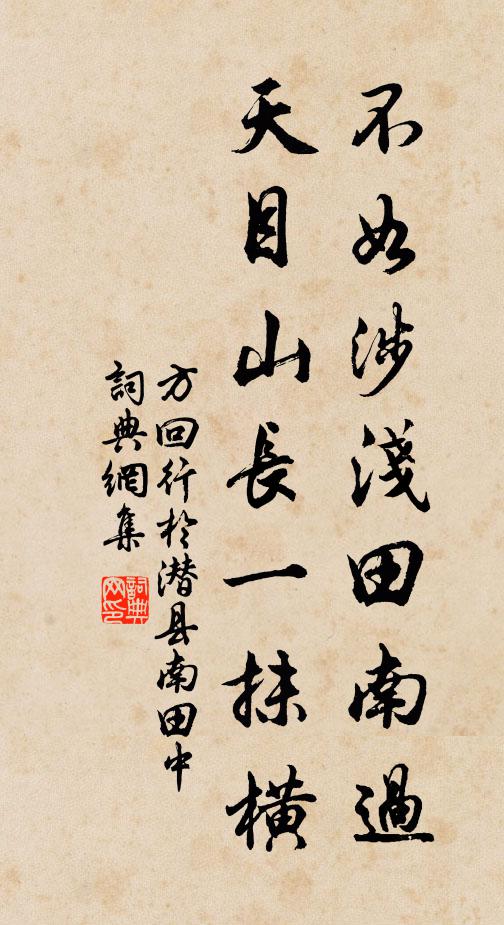 不如涉淺田南過
天目山長一抹橫
方回行於潜县南田中
詞典網集
詞典網印